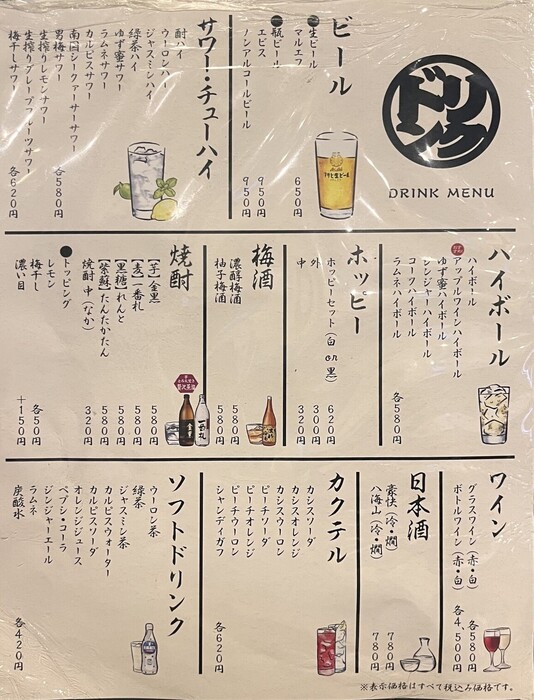 ドリンク
DRINK MENU
ビール
●生ビール
マルエフ 650円
●瓶ビール
エビス 950円
ノンアルコールビール 950円
サワー・チューハイ
酎ハイ
ウーロンハイ
ジャスミンハイ
緑茶ハイ
ゆず蜜サワー
ラムネサワー
カルピスサワー
南国シークァーサーサワー
男梅サワー 各580円
生搾りレモンサワー
生搾りグレープフルーツサワー
梅干しサワー 各620円
ハイボール
ハイボール
アップルワインハイボール
ゆず蜜ハイボール
ジンジャーハイボール
コークハイボール
ラムネハイボール 各580円
ホッピー
ホッピーセット(白 or 黒) 620円
外 300円
中 320円
梅酒
濃醇梅酒 580円
柚子梅酒 580円
焼酎
【芋】金黒 580円
【麦】一番札 580円
【黒糖】れんと 580円
【紫蘇】たんたかたん 580円
焼酎 中(なか) 320円
●トッピング
レモン
梅干し 各50円
濃い目 +150円
ワイン
グラスワイン(赤・白) 各580円
ボトルワイン(赤・白) 各4,500円
日本酒
豪快(冷・燗) 780円
八海山(冷・燗) 780円
カクテル
カシスソーダ
カシスオレンジ
カシスウーロン
ピーチソーダ
ピーチオレンジ
ピーチウーロン
シャンディガフ 各620円
ソフトドリンク
ウーロン茶
緑茶
ジャスミン茶
カルピスウォーター
カルピスソーダ
オレンジジュース
ペプシ・コーラ
ジンジャーエール
ラムネ
炭酸水 各420円
※表示価格はすべて税込み価格です。